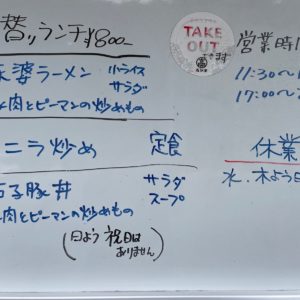 替りランチ¥800-
婆ラーメン 小ライス
サラダ
肉とピーマンの炒めもの
ニラ炒め 定食
子豚丼 サラダ
スープ
肉とピーマンの炒めもの
(日よう祝日は
ありません)
TAKE
OUT
営業時
11:30〜
17:00〜
休業
水.木よう日